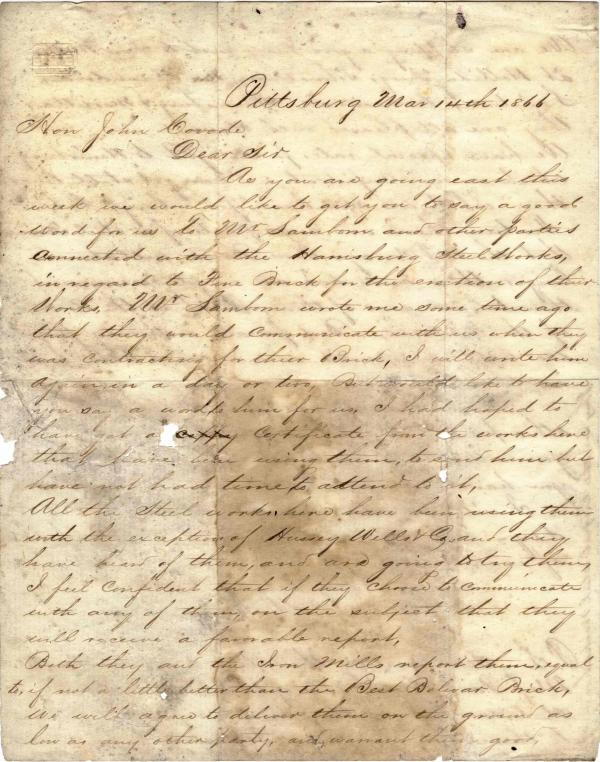 Pittsburg Mar 14th 1866
Hon John Covode
Dear Sir
As you are going east this
week we would like to get you to say a good
word for us to Mr Lamborn and other parties
connected with the Harrisburg Steel Works,
in regard to Fire Brick for the erection of their
Works. Mr Lamborn wrote me some time ago
that they would communicate with us when they
was contracting for their Brick, I will write him
again in a day or two But would like to have
you say a word to him for us, I had hoped to
have got a certificate from the works here
that have been using them, to send him but
have not had time to attend to it,
All the Steel works here have been using them
with the exception of Hussey Wells & Co, and they
have heard of them, and are going to try them,
I feel confident that if they choose to communicate
with any of them, on the subject that they
will receive a favorable report,
Both they and the Iron Mills report them, equal
to, if not a little better than the Best Bolivar Brick,
We will agree to deliver them on the ground as
low as any other party, and warrant them good,